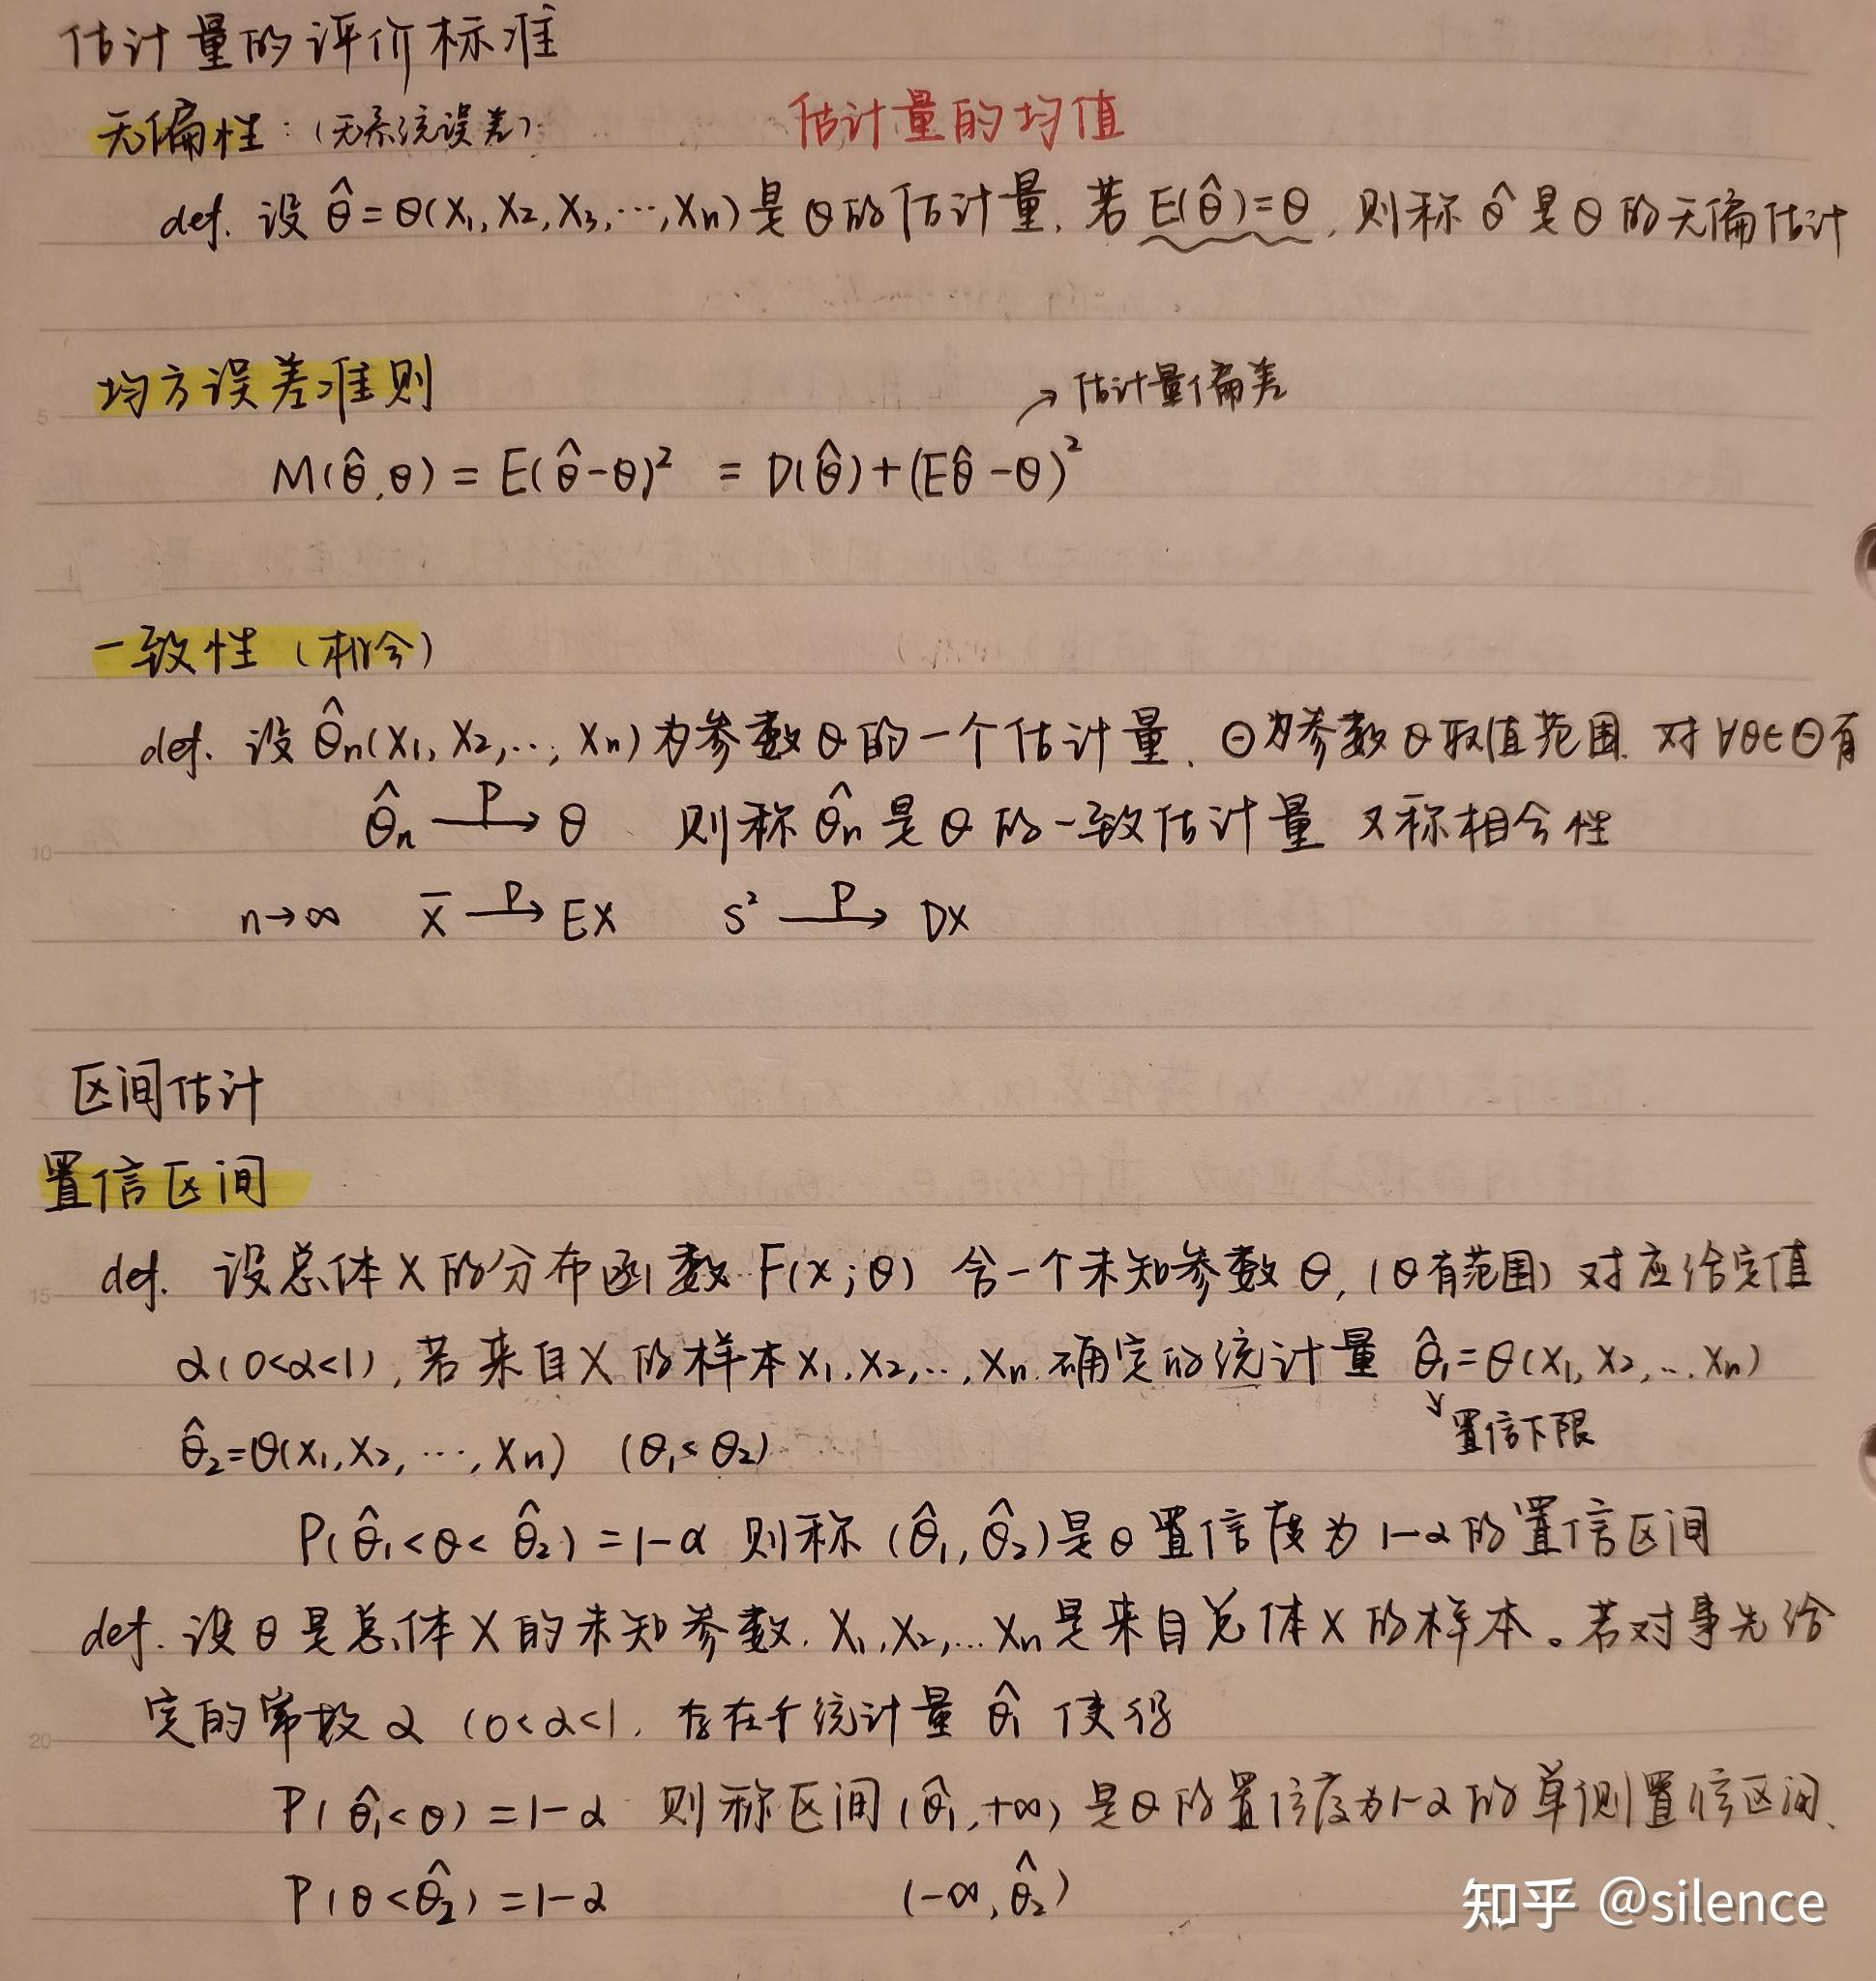 估计量的评价标准
无偏性:(无系统误差) 估计量的均值
def. 设 θ̂=θ(X₁,X₂,X₃,…,Xn)是θ的估计量,若E(θ̂)=θ,则称θ̂是θ的无偏估计
均方误差准则
→估计量偏差
M(θ̂,θ)=E(θ̂-θ)² =D(θ̂)+(Eθ̂-θ)²
一致性(相合)
def. 设θ̂n(X₁,X₂,…,Xn)为参数θ的一个估计量、Θ为参数θ取值范围.对∀θ∈Θ有
θ̂n —P→ θ 则称θ̂n是θ的一致估计量 又称相合性
n→∞ X̄ —P→ EX S² —P→ DX
区间估计
置信区间
def. 设总体X的分布函数F(x;θ) 含一个未知参数θ,(θ有范围)对应给定值
α(0<α<1),若来自X的样本X₁,X₂,…,Xn.确定的统计量 θ̂₁=θ(X₁,X₂,…,Xn)
↓置信下限
θ̂₂=θ(X₁,X₂,…,Xn) (θ₁≤θ₂)
P(θ̂₁<θ<θ̂₂)=1-α 则称(θ̂₁,θ̂₂)是θ置信度为1-α的置信区间
def. 设θ是总体X的未知参数.X₁,X₂,…Xn是来自总体X的样本。若对事先给
定的常数α (0<α<1,存在个统计量θ̂₁使得
P(θ̂₁<θ)=1-α 则称区间(θ̂₁,+∞)是θ的置信度为1-α的单侧置信区间、
P(θ<θ̂₂)=1-α (-∞,θ̂₂)
知乎 @silence